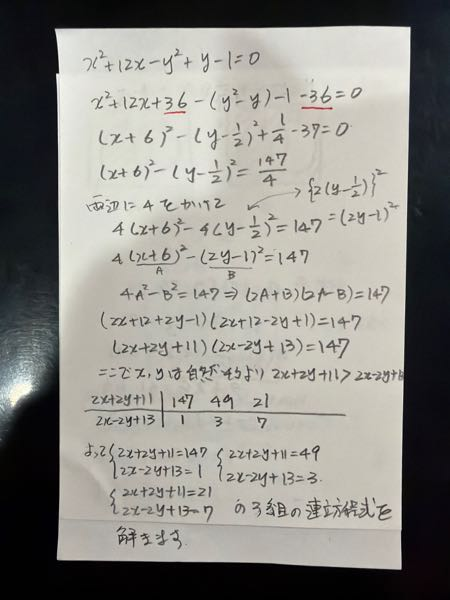 x²+12x-y²+y-1=0
x²+12x+36-(y²-y)-1-36=0
(x+6)²-(y-1/2)²+1/4-37=0
(x+6)²-(y-1/2)²=147/4
両辺に4をかけて {2(y-1/2)}²
4(x+6)²-4(y-1/2)²=147 =(2y-1)²
4(x+6)²-(2y-1)²=147
A B
4A²-B²=147⇒(2A+B)(2A-B)=147
(2x+12+2y-1)(2x+12-2y+1)=147
(2x+2y+11)(2x-2y+13)=147
ここでx,yは自然数より 2x+2y+11>2x-2y+13
2x+2y+11 147 49 21
2x-2y+13 1 3 7
よって{2x+2y+11=147 {2x+2y+11=49
2x-2y+13=1 2x-2y+13=3.
{2x+2y+11=21
2x-2y+13=7 の3組の連立方程式を
解きます.